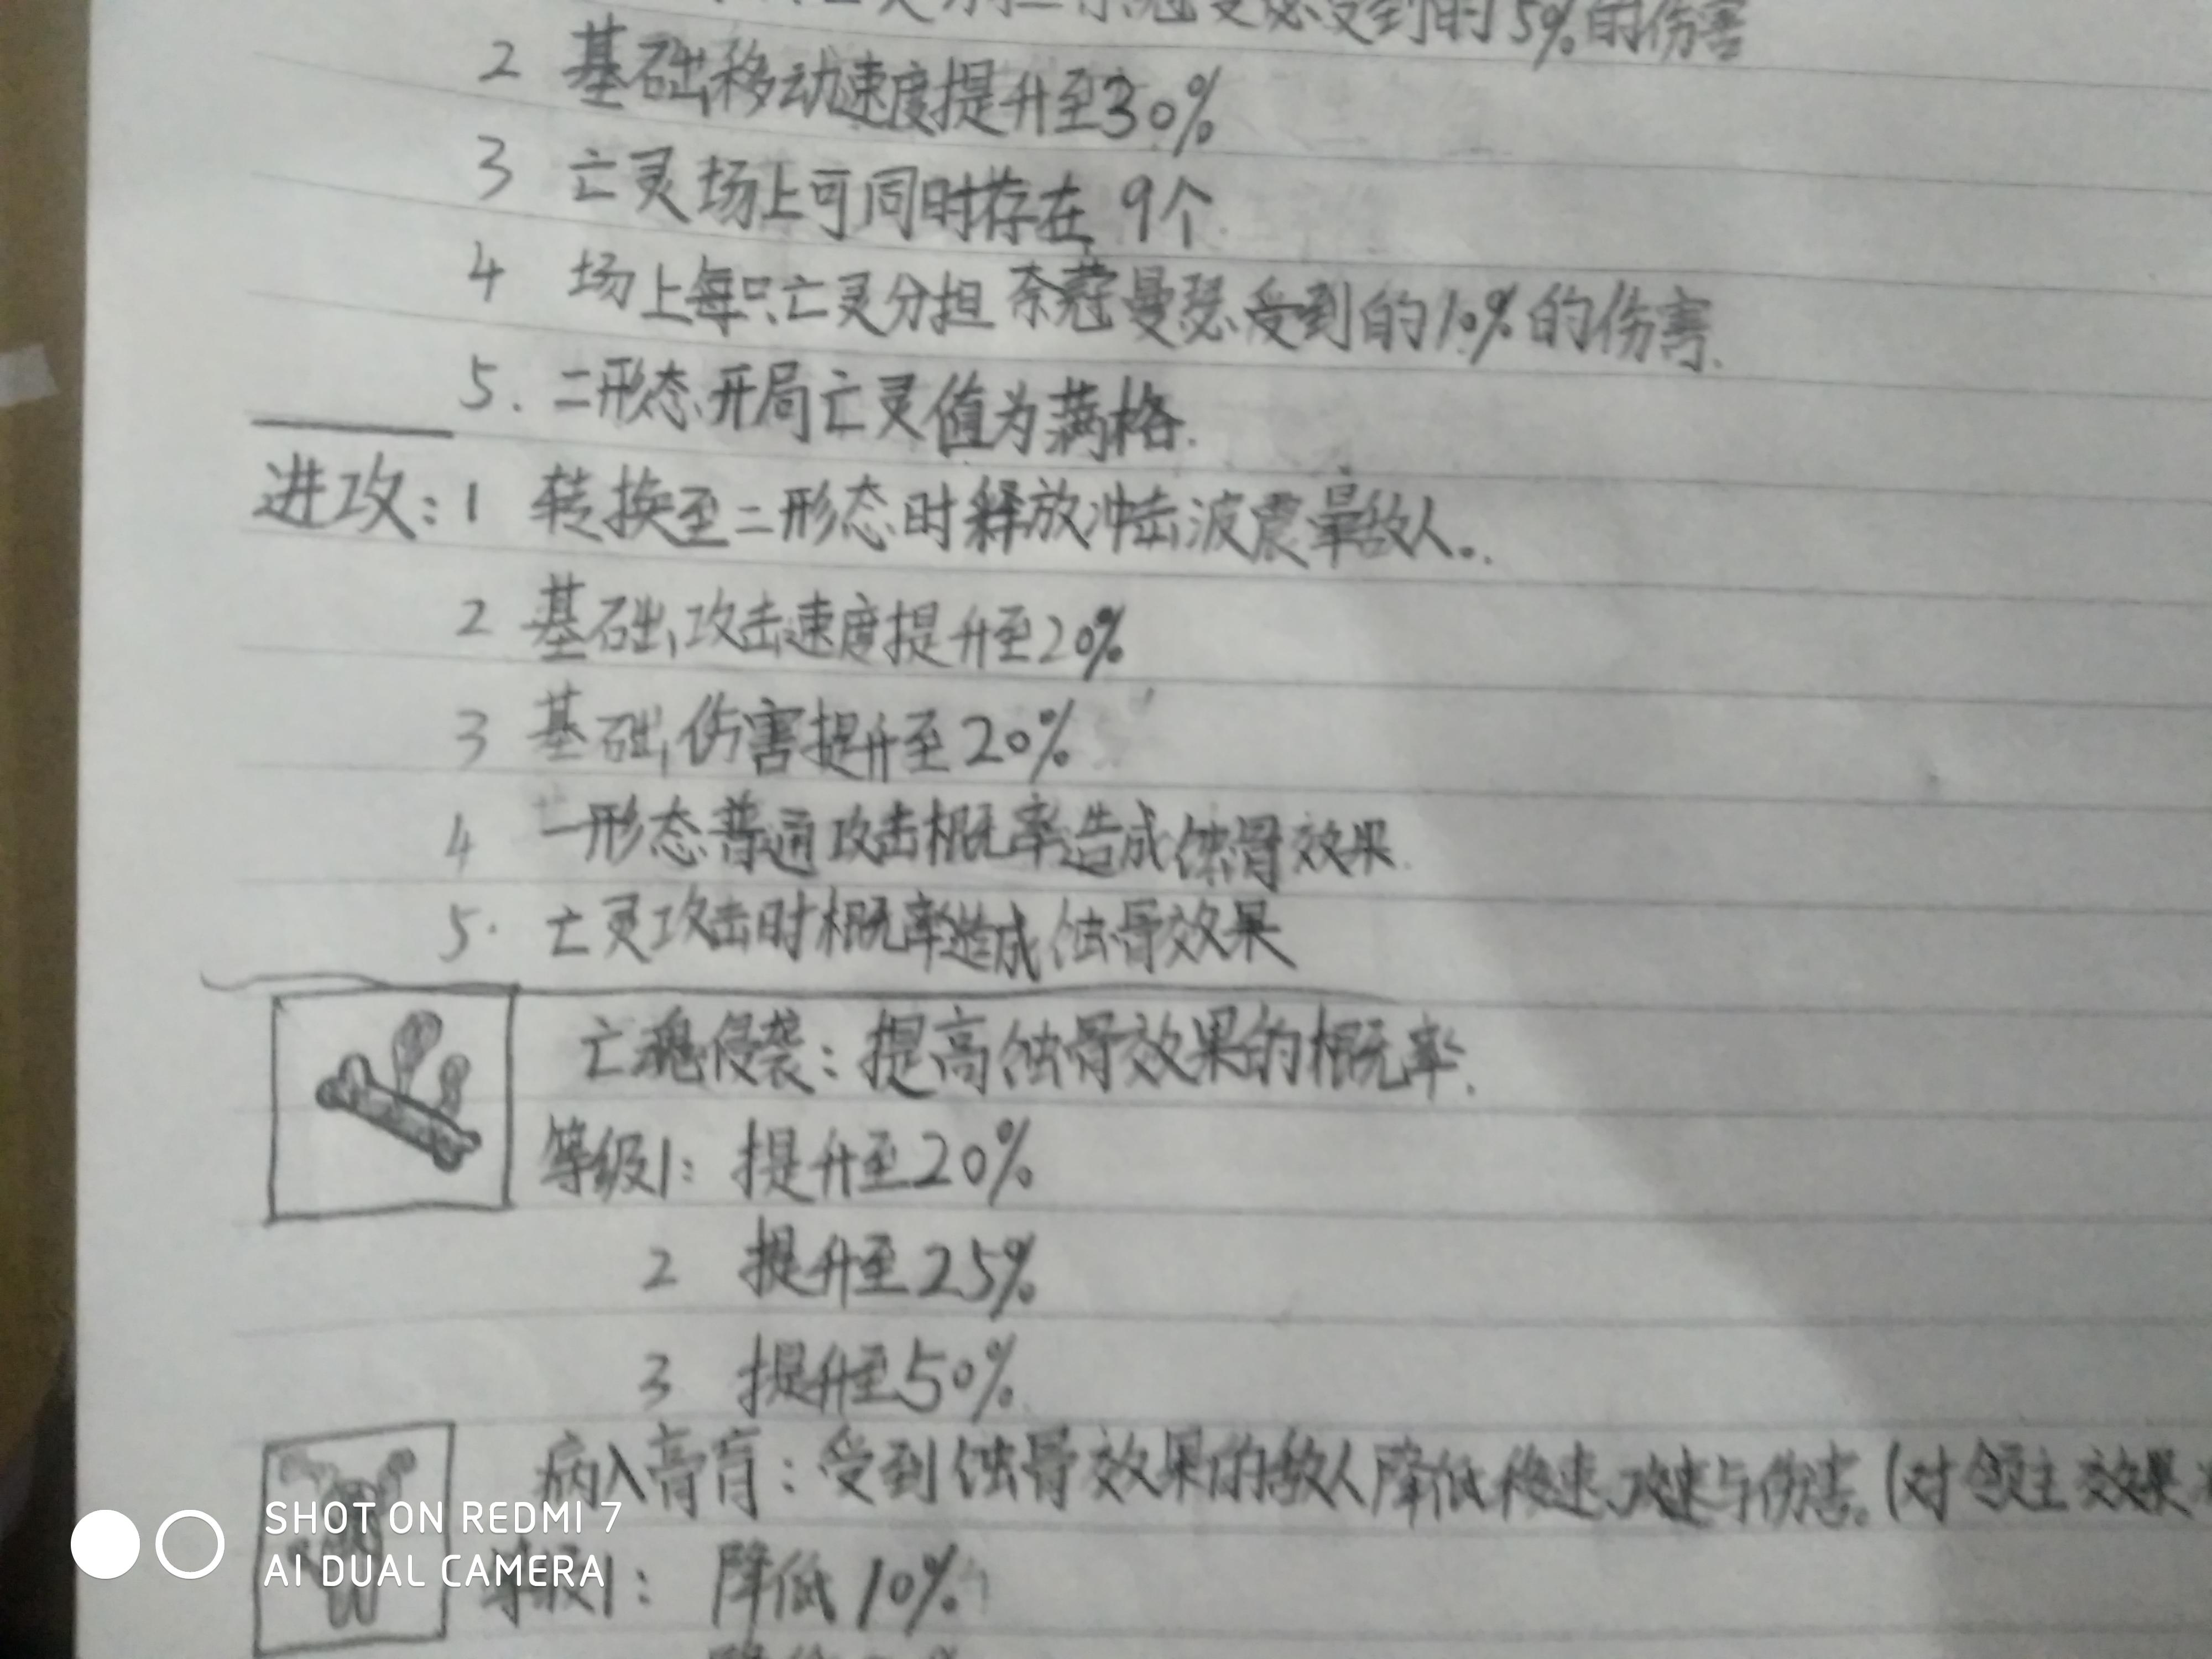 受到的5%的伤害
2 基础移动速度提升至30%
3 亡灵场上可同时存在9个
4 场上每只亡灵分担奈蔻曼瑟受到的10%的伤害.
5. 二形态开局亡灵值为满格.
进攻:1 转换至二形态时释放冲击波震晕敌人。
2 基础攻击速度提升至20%
3 基础伤害提升至20%
4 一形态普通攻击概率造成蚀骨效果
5. 亡灵攻击时概率造成蚀骨效果
亡魂侵袭:提高蚀骨效果的概率.
等级1: 提升至20%
2 提升至25%
3 提升至50%
病入膏肓:受到蚀骨效果的敌人降低移速、攻速与伤害。(对领主效果
等级1: 降低10%
SHOT ON REDMI 7
AI DUAL CAMERA